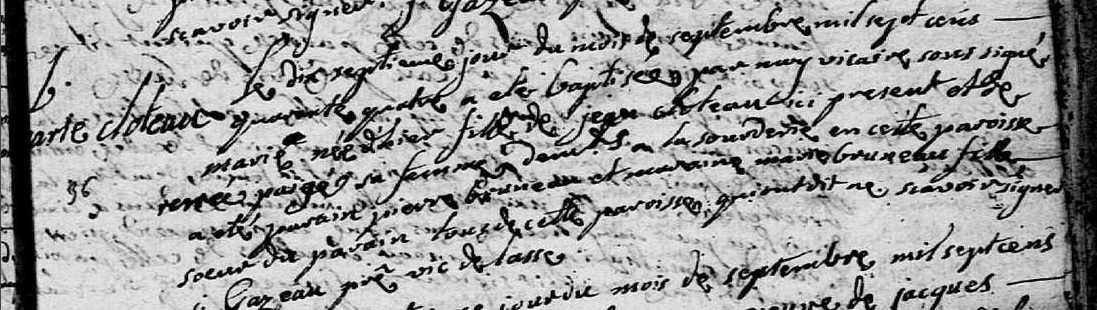 scavoir signer
B.
Le dix septieme jour du mois de septembre mil sept cens
marie cloteau quarante quatre a eté baptisée par moy vicaire soussigné
marie née d'hier fille de jean cloteau ici present et de
36 renée pagé sa femme dem.ts a la sourderie en cette paroisse
a eté parain pierre bruneau et maraine marie bruneau fille
soeur du parain tous de cette paroisse qui ont dit ne scavoir signer
Gazeau p.re vic de
jour du mois de septembre mil sept cens
de jacques